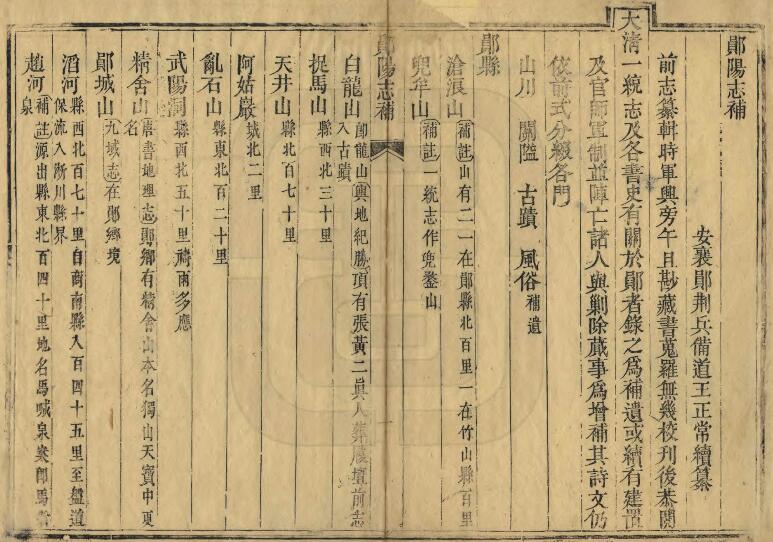 鄖陽志補
安襄鄖荆兵備道王正常續纂
前志纂輯時軍興旁午且尠藏書蒐羅無幾校刊後恭閱
大清一統志及各書史有關於鄖者錄之爲補遺或續有建置
及官師置制並陣亡諸人與剿除蕆事爲增補其詩文仍
依前式分綴各門
山川 關隘 古蹟 風俗補遺
鄖縣
滄浪山補註山有二一在鄖縣北百里一在竹山縣百里
兜牟山補註一統志作兜鍪山
鄖陽志補
白龍山卽龍山輿地紀勝頂有張黃二眞人 壇前志
入古蹟
捉馬山縣西北三十里
天井山縣北百七十里
阿姑巖城北二里
亂石山縣東北百二十里
武陽洞縣西北五十里禱雨多應
精舍山唐書地理志鄖鄉有精舍山本名獨山天寶中更
名
鄖城山九域志在鄖鄉境
滔河縣西北百七十里自商南縣入百四十五里至盤道
保流入淅川縣界
趙河補註源出縣東北百四十里地名馬喊泉案卽馬
泉